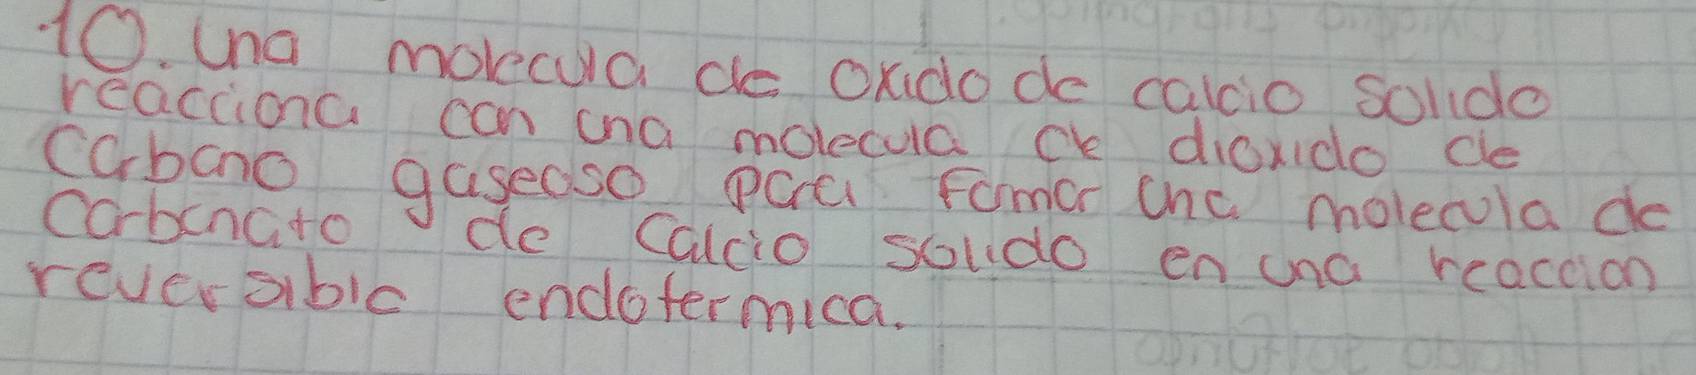 10. Una molecula de oxido de calcio solido
reacciona con una molecula de dioxido de
carbono gaseoso para formar una molecula de
carbonato de calcio solido en una reaccion
reversible endotermica.